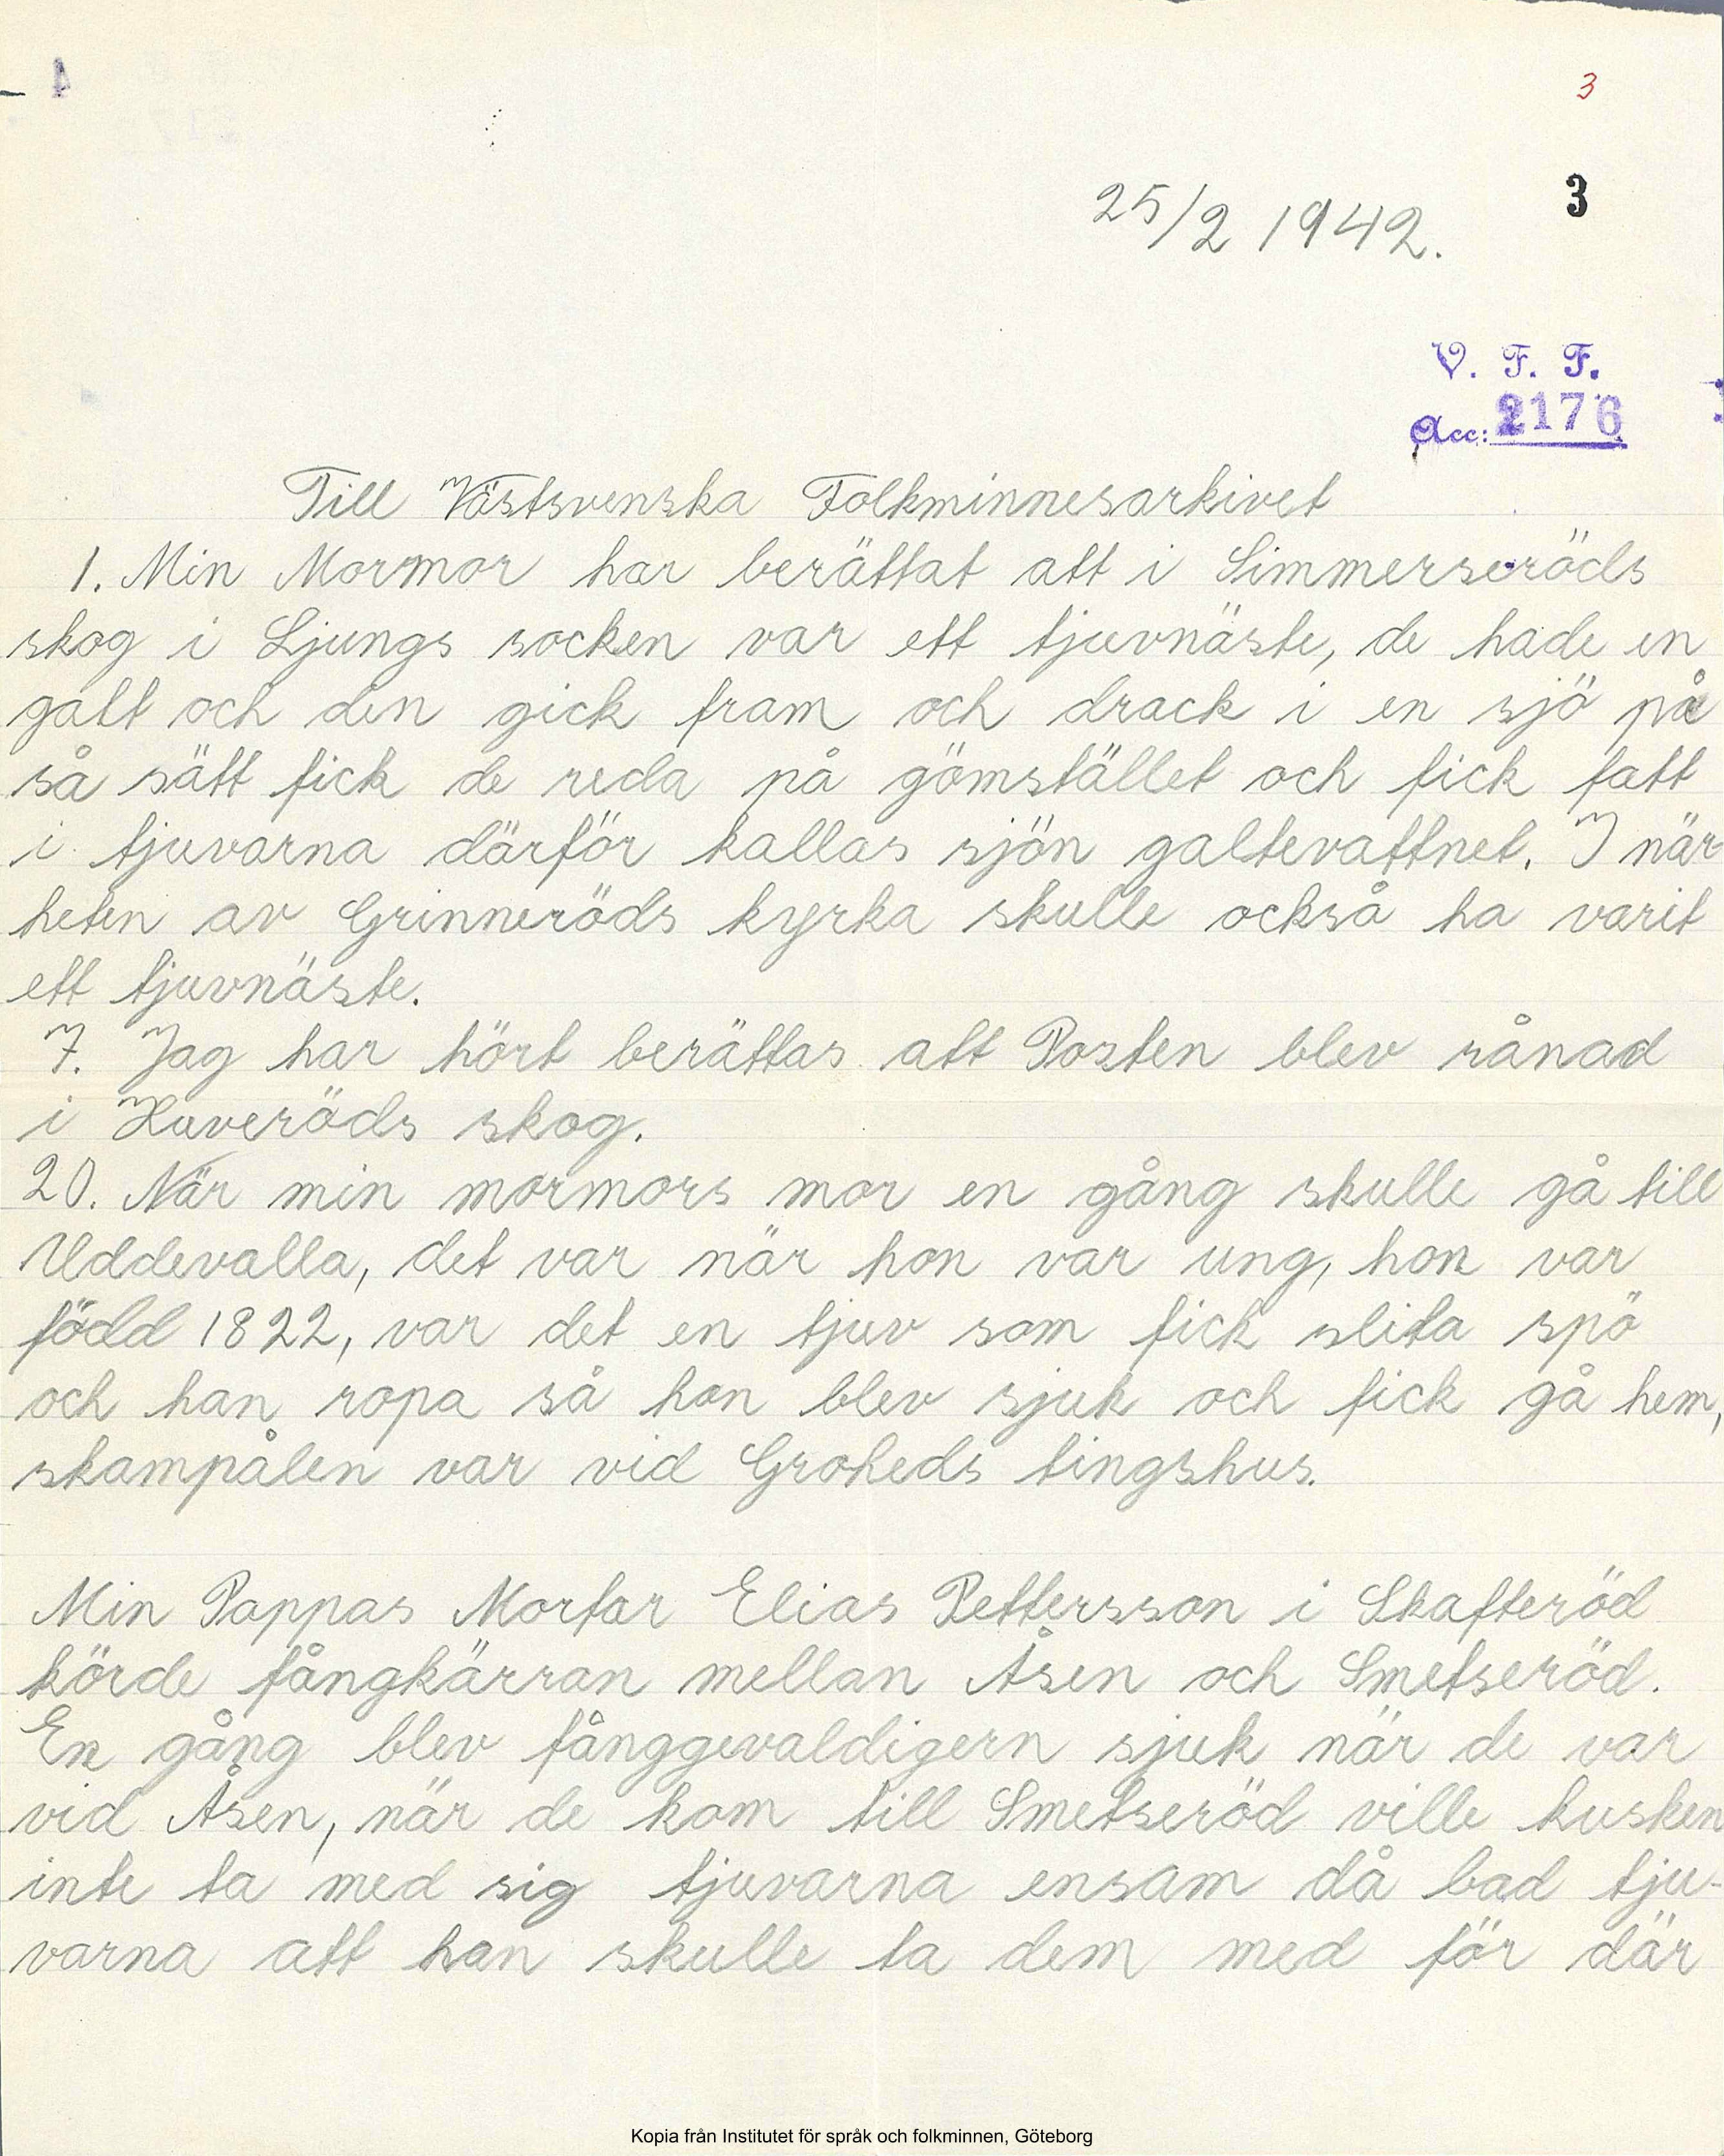 3
3
25/2 1942.
V. F. F.
Acc: 2176
Till Västsvenska Folkminnesarkivet
1. Min Mormor har berättat att i Simmerseröds
skog i Ljungs socken var ett tjuvnäste, de hade en
galt och den gick fram och drack i en sjö på
så sätt fick de reda på gömstället och fick fatt
i tjuvarna därför kallas sjön galtevattnet. I när-
heten av Grinneröds kyrka skulle också ha varit
ett tjuvnäste.
7. Jag har hört berättas att Posten blev rånad
i Haveröds skog.
20. När min mormors mor en gång skulle gå till
Uddevalla, det var när hon var ung, hon var
född 1822, var det en tjuv som fick slita spö
och han ropa så hon blev sjuk och fick gå hem,
skampålen var vid Groheds tingshus.
Min Pappas Morfar Elias Pettersson i Skafteröd
körde fångkärran mellan Åsen och Smetseröd.
En gång blev fånggevaldigern sjuk när de var
vid Åsen, när de kom till Smetseröd ville kusken
inte ta med sig tjuvarna ensam då bad tju-
varna att han skulle ta dem med för där
Kopia från Institutet för språk och folkminnen, Göteborg